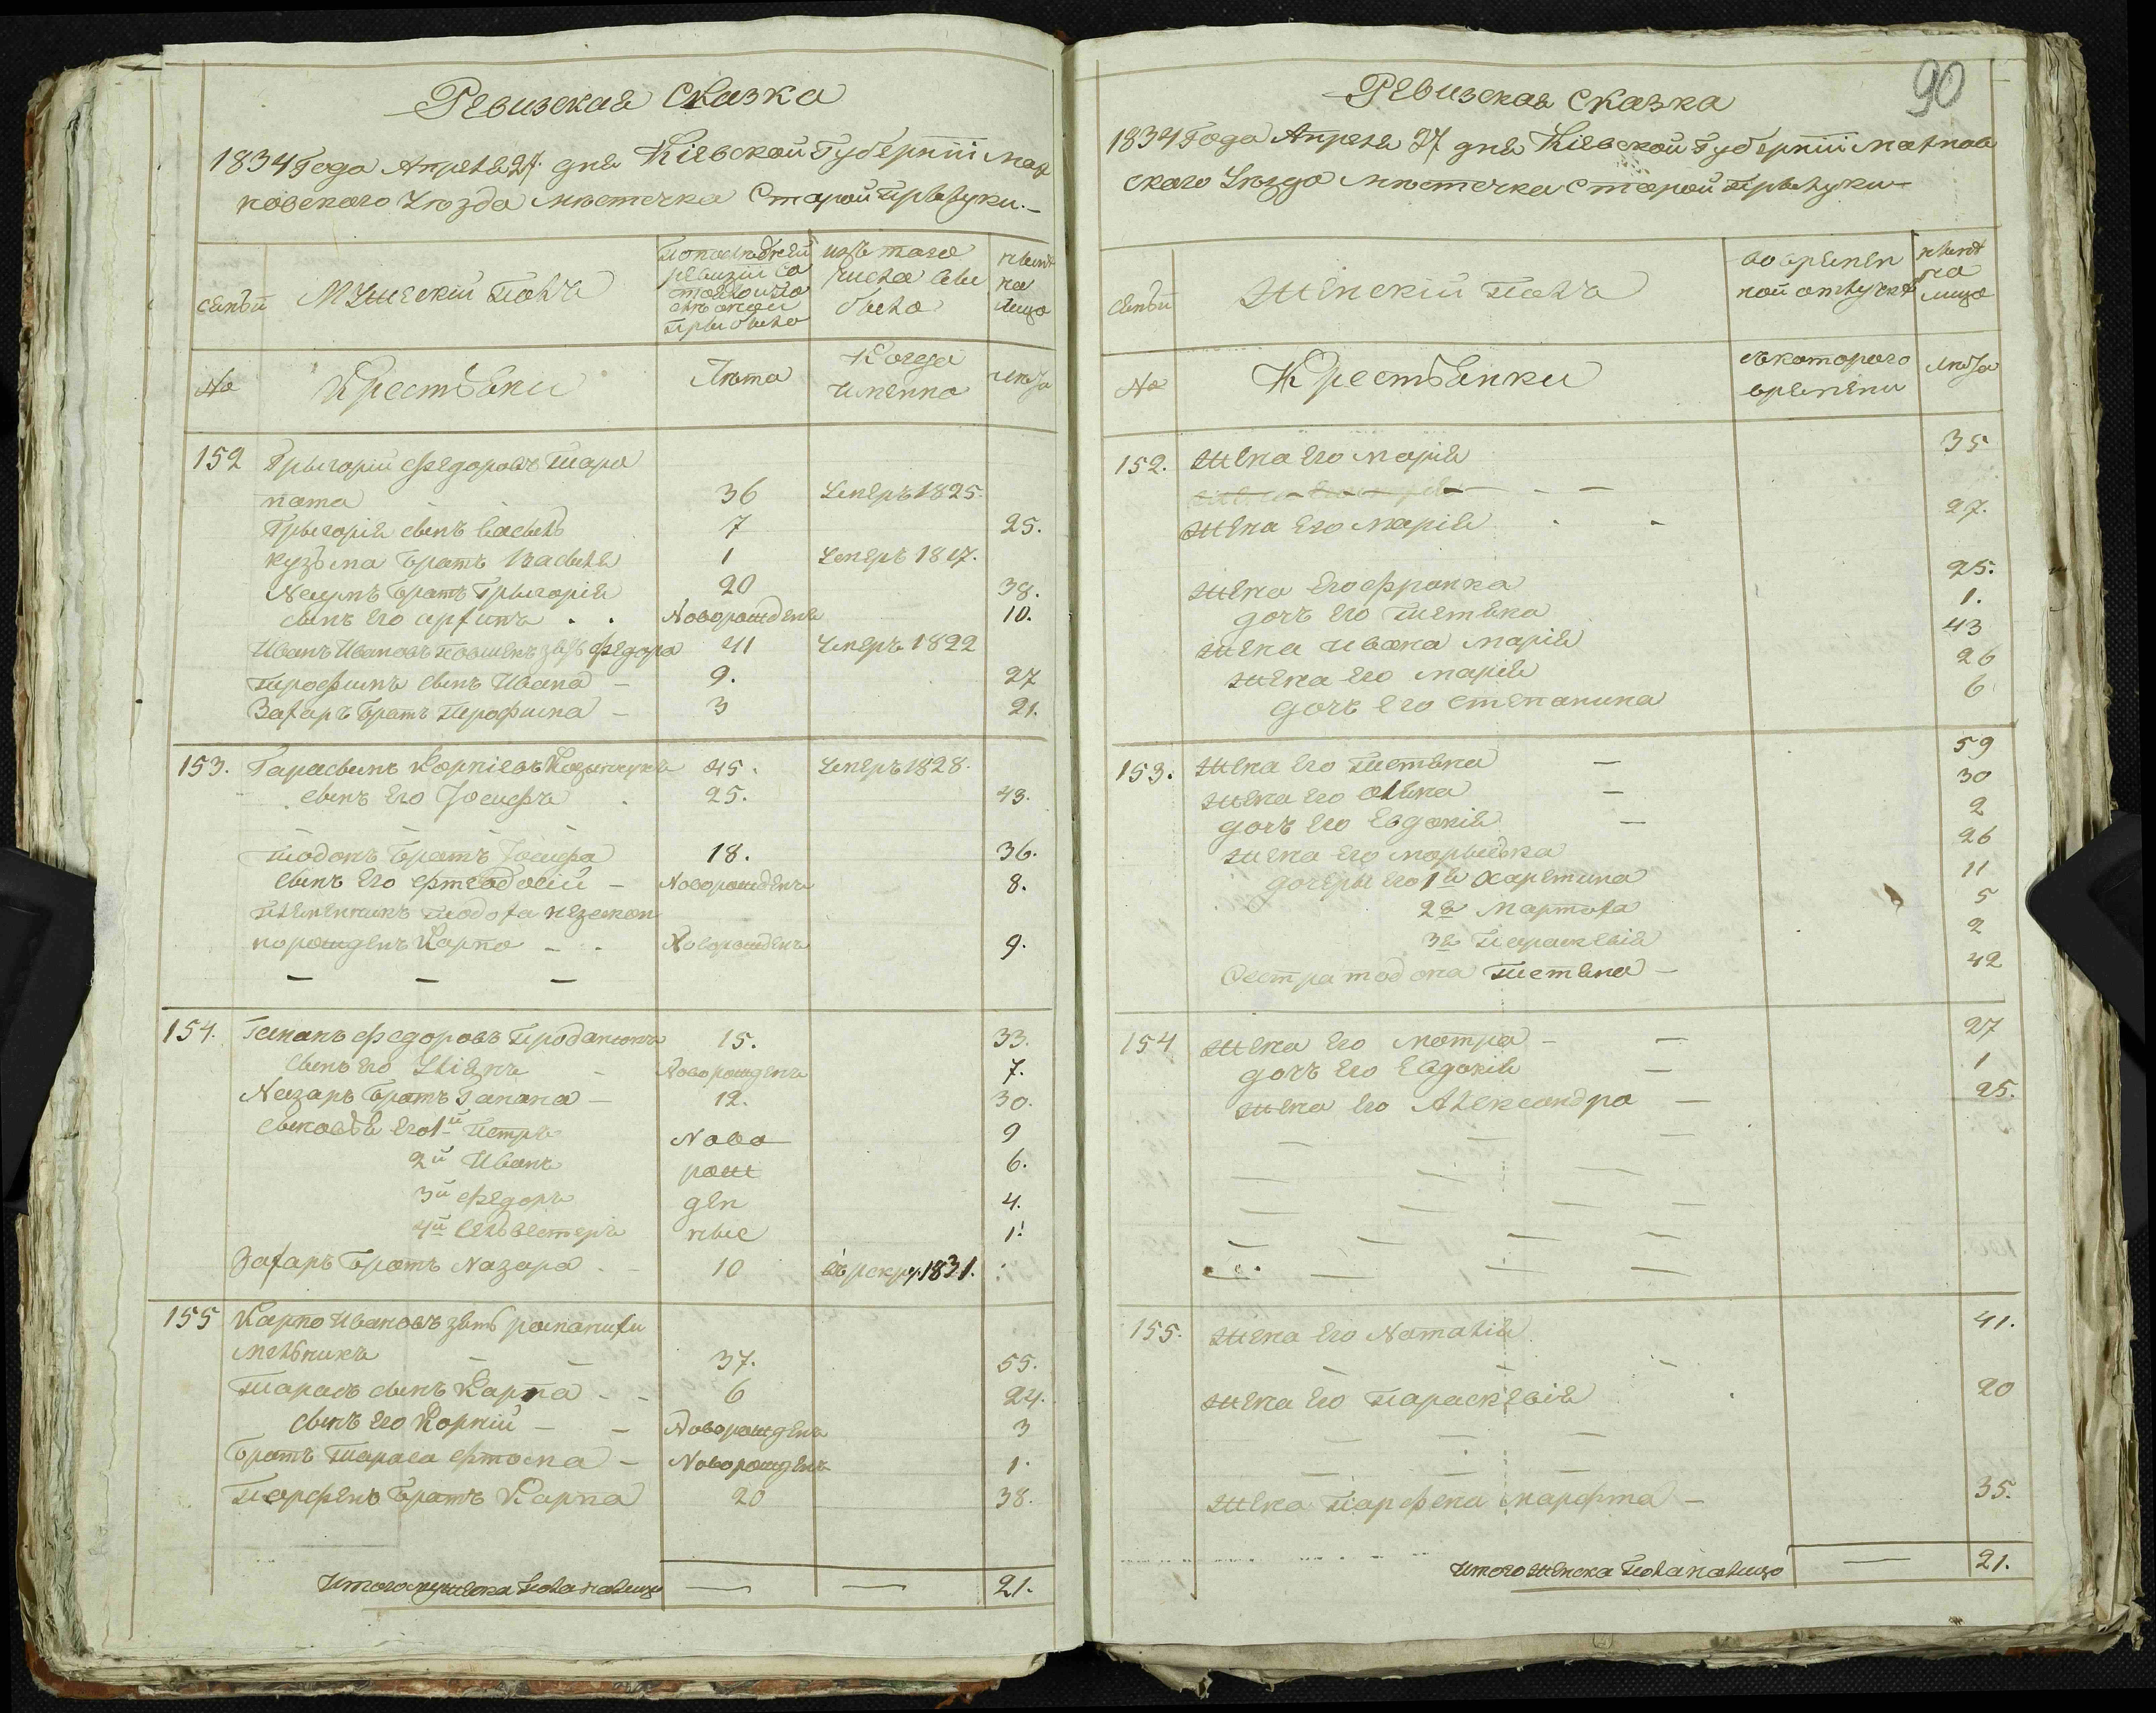 Ревизская Сказка
1834 Года Апреля 27 дня Кіевской Губерніи Мах
новского Уѣзда мѣстечка Старой Прылуки.
семьи
Мушескій полъ
По последней
ревизіи со
стояло и по
слѣ оной
прыбыло
изъ того
числа выбы
было
ныне
на
лицо
№
Крестьяни
Лѣта
Когда
именно
лѣта
152 Грыгорій Федоровъ Шара
пата 36 Умеръ 1825.
Грыгорія сынъ Василь 7 25.
Кузьма братъ Василя 1 Умеръ 1817.
Наумъ братъ Грыгорія 20 38.
сынъ его Архипъ Новорожденъ 10.
Иванъ Ивановъ зять Федора 41 Умеръ 1822
Трофимъ сынъ Ивана 9. 27
Захаръ братъ Трофима 3 21.
153. Тарасынъ Корніевъ 45. Умеръ 1828.
сынъ его Іосифъ 25. 43.
Тодопъ братъ Іосифа 18. 36.
сынъ его Фтеодосій Новорожденъ 8.
Племенникъ Тодоха незакон
порожденъ Карпо Новорожденъ 9.
154. Романъ Федоровъ Проданюкъ 15. 33.
сынъ его Новорожденъ 7.
Назаръ братъ Романа 12. 30.
сыновья его 1й Петръ Ново 9
2й Иванъ рож 6.
3й Федоръ ден 4.
4й Сельвестеръ ные 1.
Захаръ братъ Назара 10 въ рекру. 1831.
155 Карпо Ивановъ зять романихи
Мельникъ 37. 55.
Тарасъ сынъ Карпа 6 24.
сынъ его Корній Новорожденъ 3
братъ Тараса Фтома Новорожденъ 1.
Парфенъ братъ Карпа 20 38.
Итого мужеска пола налицо 21.
90
Ревизская Сказка
1834 Года Апреля 27 дня Кіевской Губерніи Махнов
ского Уѣзда мѣстечка Старой Прылуки
семьи
Женскій полъ
во времен
ной отлучкѣ
ныне
на
лицо
№
Крестьянки
съ которого
времени
лѣта
152. жена его Марія 35
жена его Марія 27.
жена его Франка 25.
дочъ его Тетяна 1.
жена Ивана Марія 43
жена его Марія 26
дочъ его Степанина 6
153. жена его Тетяна 59
жена его Олена 30
дочъ его Евдокія 2
жена его Марыська 26
дочеры его 1я Харетина 11
2я Мартоха 5
3я Парасковія 2
Сестра Тодопа Тетяна 42
154 жена его Мотра 27
дочъ его Евдокія 1
жена его Александра 25.
155. жена его Наталія 41.
жена его Парасковія 20
жена Парфена Марфта 35.
Итого женска пола налицо 21.